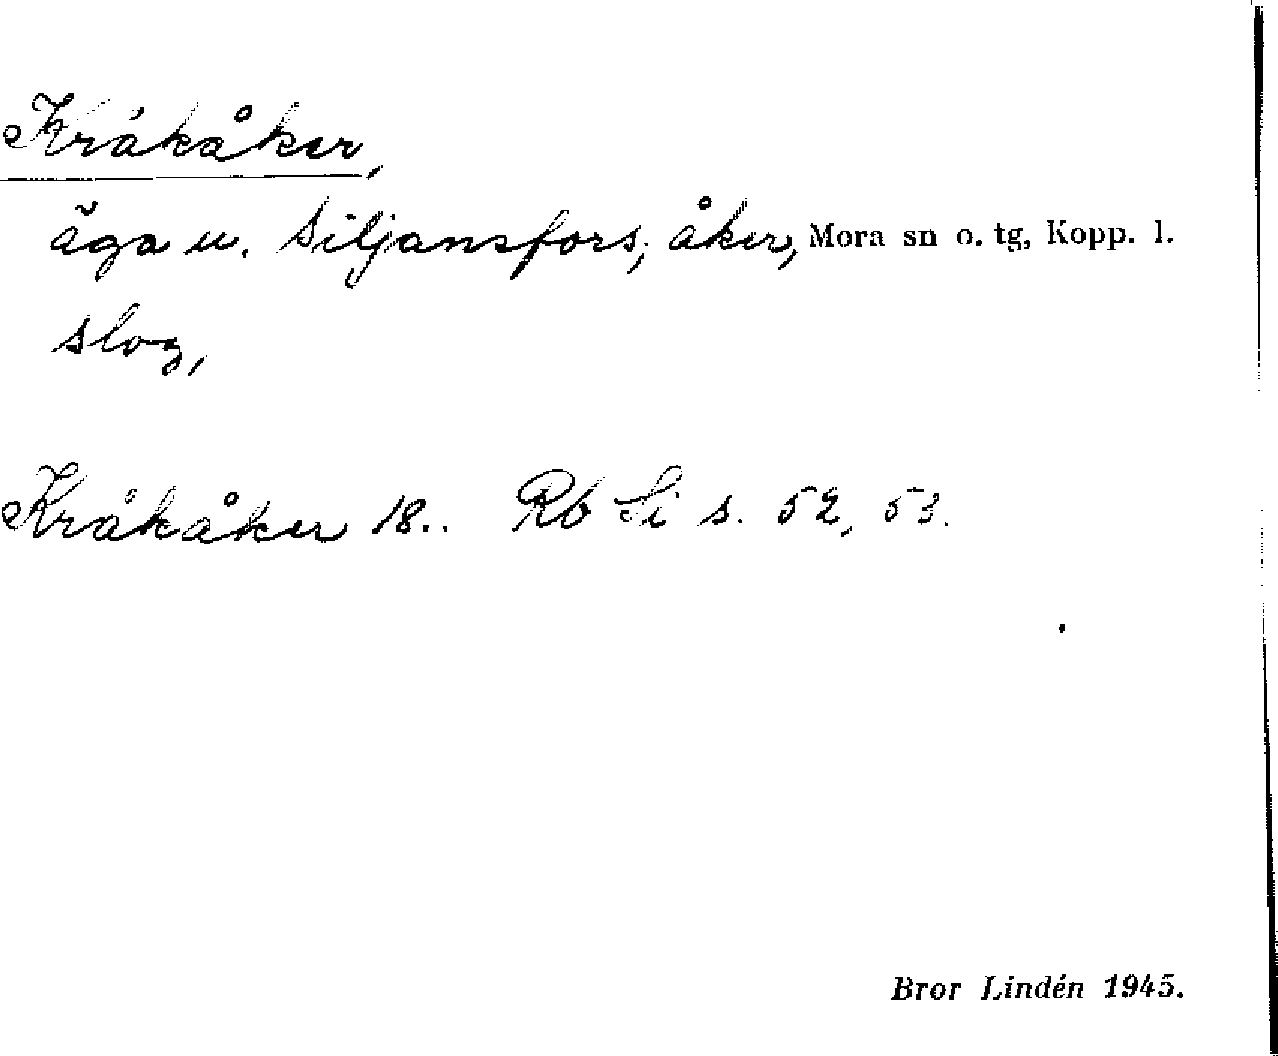 Kråkåker,
äga u. Siljansfors, åker, Mora sn o. tg, Kopp. l.
slog,
Kråkåker 18.. Rb Si s. 52, 53.
Bror Lindén 1945.